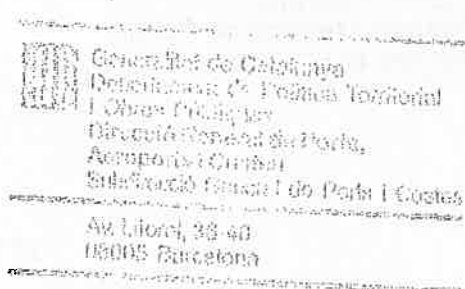 Generalitat de Catalunya
Departament de Política Territorial
i Obres Públiques
Direcció General de Ports,
Aeroports i Costes
Subdirecció General de Ports i Costes
Av. Litoral, 38-40
08005 Barcelona